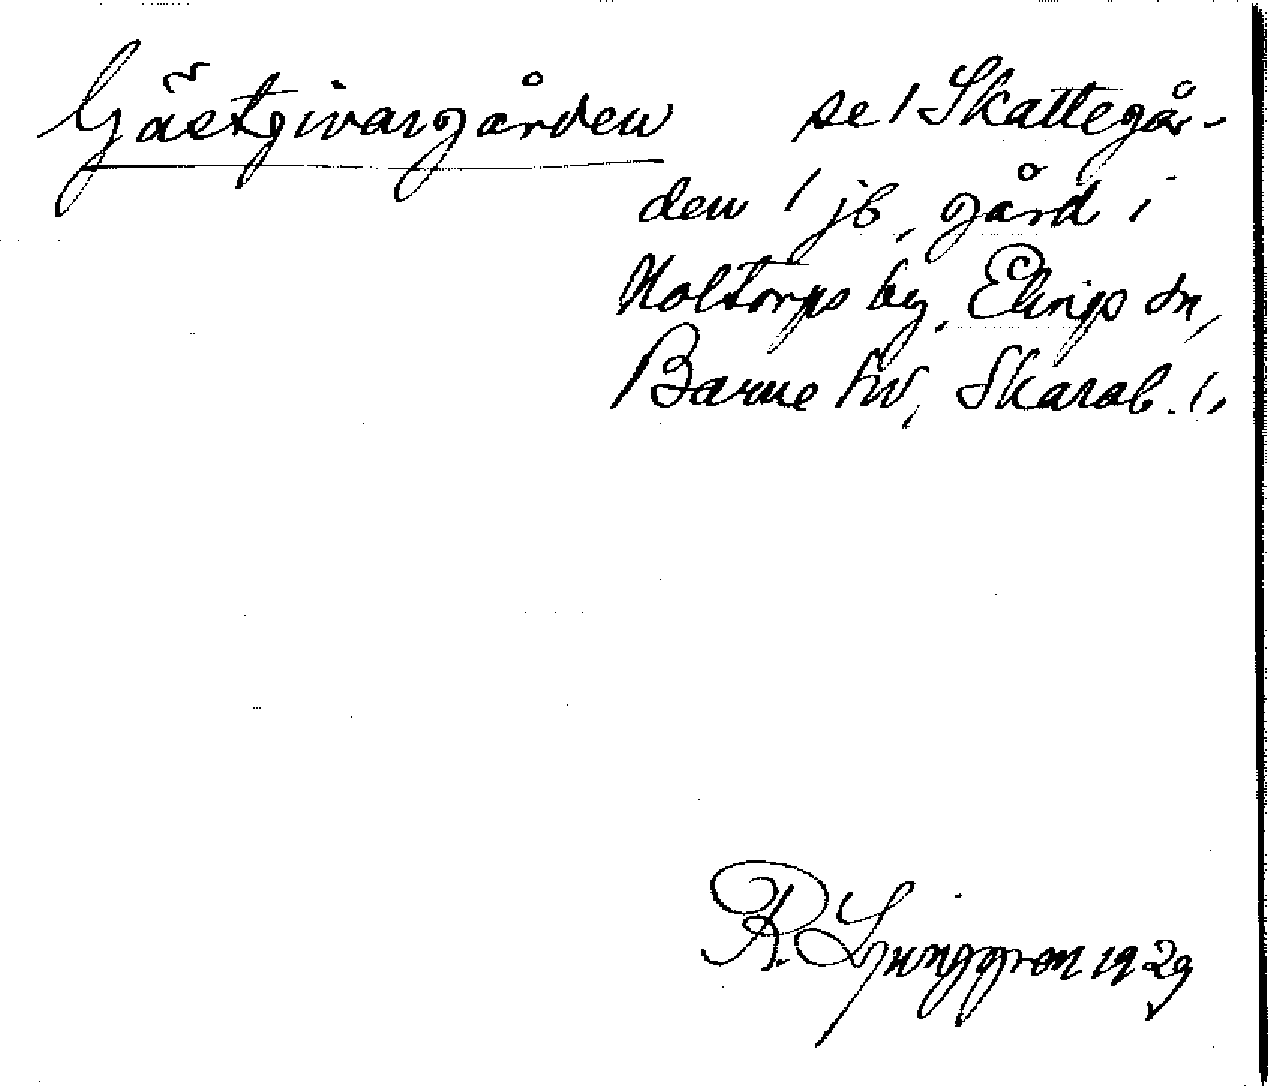 Gästgivargården se / Skattegår-
den / jb, gård i
Holtorps by, Elings sn,
Barne hd, Skarab. l.
R. Ljunggren 1929